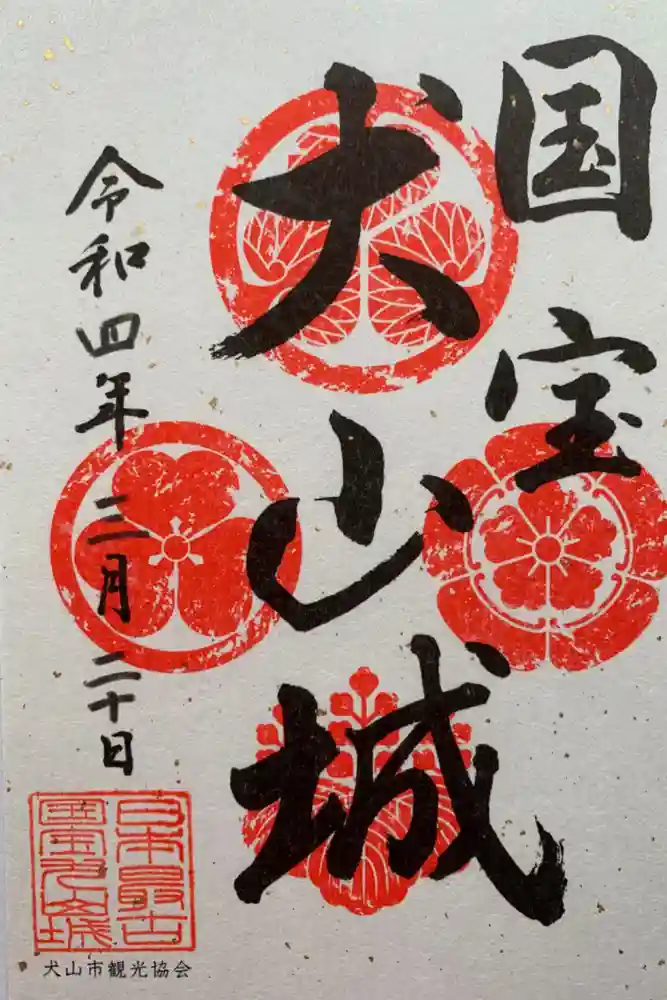 国宝
犬山城
令和四年 三月 二十日
日本最古
国宝犬山城
犬山市観光協会